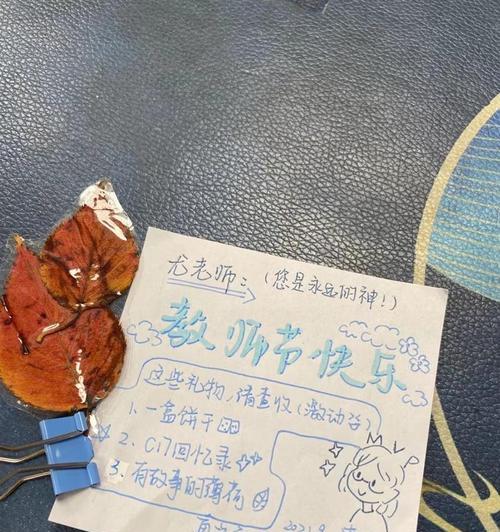 龙老师：（您是永远的神！）
教师节快乐
这些礼物，请查收（激动
1、一盒饼干
2、C17回忆录
3、有故事的薄荷
2021.9